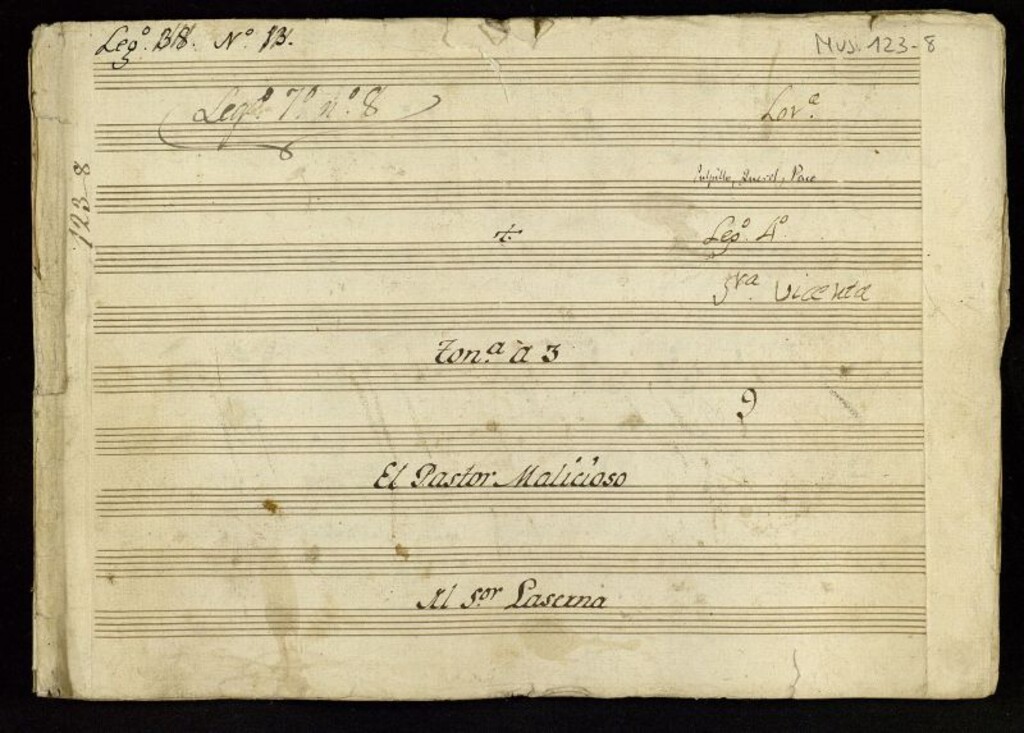 Leg.º 318. Nº 13.
Mus. 123-8
Legº 7º nº 8
Lor.ª
123-8
Pulpillo, Querol, Paco
Leg.º 4º
Sra Vicenta
Ton.ª à 3
9
El Pastor Malicioso
Al S.or Laserna